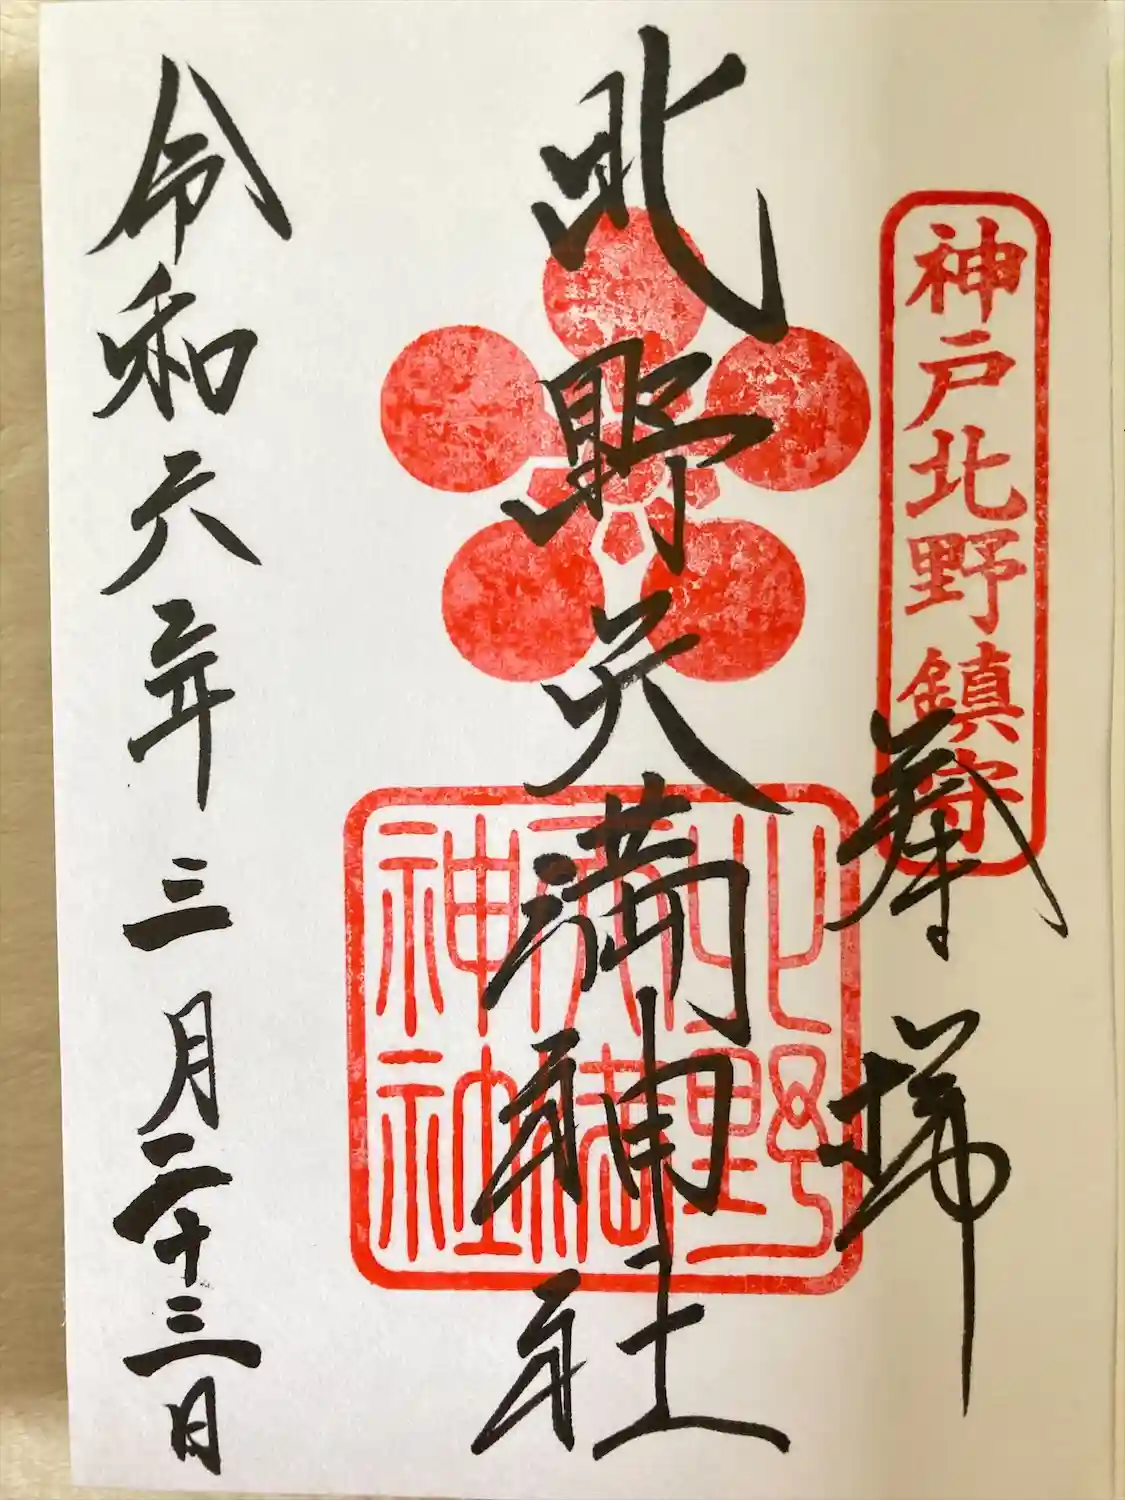 神戸北野鎮守
奉拝
北野天満神社
北野天満神社
令和六年三月二十三日